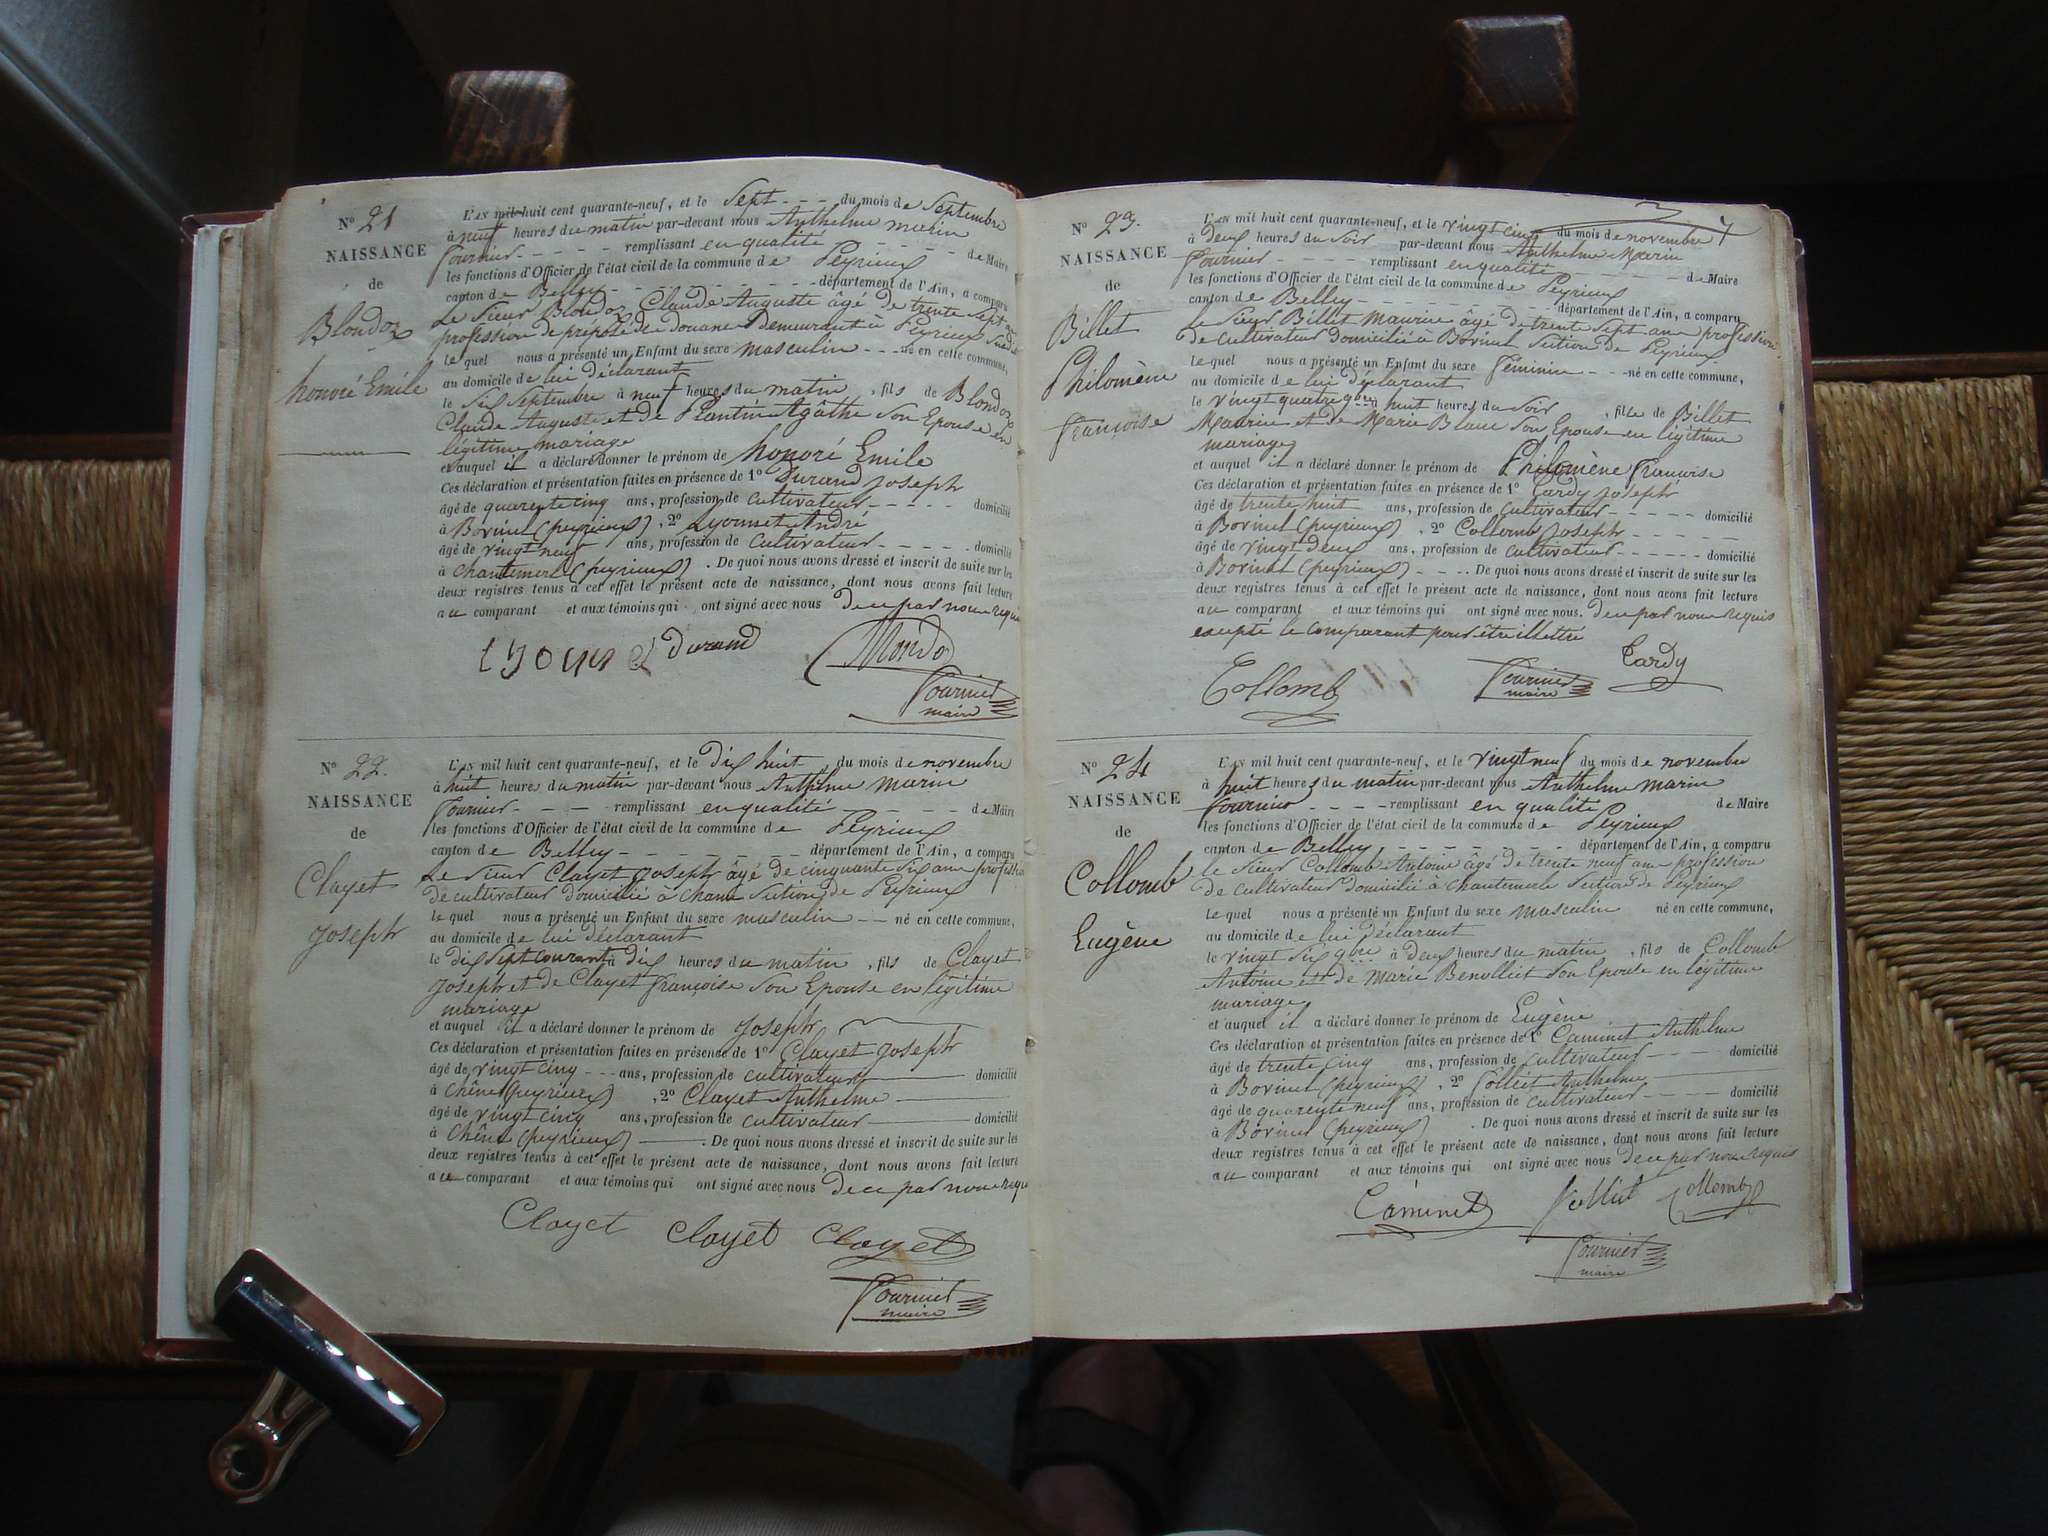 N° 21
NAISSANCE
de
Blondoz
honoré Emile
L'AN mil huit cent quarante-neuf, et le Sept - - - du mois de Septembre
à neuf heures du matin par-devant nous Anthelme marin
Fournier - - - - remplissant en qualité - - - - de Maire
les fonctions d'Officier de l'état civil de la commune de Peyrieux
canton de Belley - - - - département de l'Ain, a comparu
Le Sieur Blondoz Claude Auguste âgé de trente Sept ans
profession de préposé de douane Demeurant à Peyrieux
lequel nous a présenté un Enfant du sexe masculin - - - né en cette commune,
au domicile de lui déclarant
le Six Septembre à neuf heures du matin, fils de Blondoz
Claude Auguste et de Plantin Agâthe Son Epouse en
légitime mariage
et auquel il a déclaré donner le prénom de honoré Emile
Ces déclaration et présentation faites en présence de 1° Durand Joseph
âgé de quarente cinq ans, profession de cultivateur - - - - - domicilié
à Borinet (peyrieux), 2° Lyonnet André
âgé de vingt neuf ans, profession de cultivateur - - - - domicilié
à chantemerle (peyrieux). De quoi nous avons dressé et inscrit de suite sur les
deux registres tenus à cet effet le présent acte de naissance, dont nous avons fait lecture
au comparant et aux témoins qui ont signé avec nous de ce par nous requis
Durand
Fournier
maire
N° 22.
NAISSANCE
de
Clayet
Joseph
L'AN mil huit cent quarante-neuf, et le dix huit du mois de novembre
à huit heures du matin par-devant nous Anthelme marin
Fournier - - - - remplissant en qualité - - - - de Maire
les fonctions d'Officier de l'état civil de la commune de Peyrieux
canton de Belley - - - - département de l'Ain, a comparu
Le Sieur Clayet Joseph âgé de cinquante Six ans profession
de cultivateur domicilié à chêne Section de Peyrieux
lequel nous a présenté un Enfant du sexe masculin - - né en cette commune,
au domicile de lui déclarant
le dix Sept courant à dix heures du matin, fils de Clayet
Joseph et de Clayet françoise Son Epouse en légitime
mariage
et auquel il a déclaré donner le prénom de Joseph
Ces déclaration et présentation faites en présence de 1° Clayet Joseph
âgé de vingt cinq - - - ans, profession de cultivateur domicilié
à Chêne (peyrieux), 2° Clayet Anthelme
âgé de vingt cinq ans, profession de cultivateur domicilié
à Chêne (peyrieux). De quoi nous avons dressé et inscrit de suite sur les
deux registres tenus à cet effet le présent acte de naissance, dont nous avons fait lecture
au comparant et aux témoins qui ont signé avec nous de ce par nous requis
Clayet Clayet Clayet
Fournier
maire
N° 23.
NAISSANCE
de
Billet
Philomène
françoise
L'AN mil huit cent quarante-neuf, et le vingt cinq du mois de novembre
à deux heures du Soir par-devant nous Anthelme Marin
Fournier - - - - remplissant en qualité - - - - de Maire
les fonctions d'Officier de l'état civil de la commune de Peyrieux
canton de Belley - - - - département de l'Ain, a comparu
le Sieur Billet Maurice âgé de trente Sept ans profession
de cultivateur domicilié à Borinet Section de Peyrieux
lequel nous a présenté un Enfant du sexe féminin - - - né en cette commune,
au domicile de lui déclarant
le vingt quatre 9bre à huit heures du Soir, fille de Billet
Maurice et de Marie Blanc Son Epouse en légitime
mariage
et auquel il a déclaré donner le prénom de Philomène françoise
Ces déclaration et présentation faites en présence de 1° Cardy Joseph
âgé de trente huit ans, profession de cultivateur - - - - - domicilié
à Borinet (peyrieux), 2° Collomb Joseph - - - - -
âgé de vingt deux ans, profession de cultivateur - - - - - domicilié
à Borinet (peyrieux) - - . De quoi nous avons dressé et inscrit de suite sur les
deux registres tenus à cet effet le présent acte de naissance, dont nous avons fait lecture
au comparant et aux témoins qui ont signé avec nous. de ce par nous requis
excepté le comparant pour être illettré
Collomb Fournier Cardy
maire
N° 24
NAISSANCE
de
Collomb
Eugène
L'AN mil huit cent quarante-neuf, et le vingt neuf du mois de novembre
à huit heures du matin par-devant nous Anthelme marin
Fournier - - - - remplissant en qualité de Maire
les fonctions d'Officier de l'état civil de la commune de Peyrieux
canton de Belley - - - - département de l'Ain, a comparu
le Sieur Collomb Antoine âgé de trente neuf ans profession
de cultivateur domicilié à chantemerle Section de Peyrieux
lequel nous a présenté un Enfant du sexe masculin né en cette commune,
au domicile de lui déclarant
le vingt Six 9bre à deux heures du matin, fils de Collomb
Antoine et de Marie Benollict Son Epouse en légitime
mariage
et auquel il a déclaré donner le prénom de Eugène
Ces déclaration et présentation faites en présence de 1° Caminet Anthelme
âgé de trente cinq ans, profession de cultivateur - - - domicilié
à Borinet (peyrieux), 2° Anthelme
âgé de quarente neuf ans, profession de cultivateur - - - - domicilié
à Borinet (peyrieux). De quoi nous avons dressé et inscrit de suite sur les
deux registres tenus à cet effet le présent acte de naissance, dont nous avons fait lecture
au comparant et aux témoins qui ont signé avec nous de ce par nous requis
Caminet Collomb
Fournier
maire